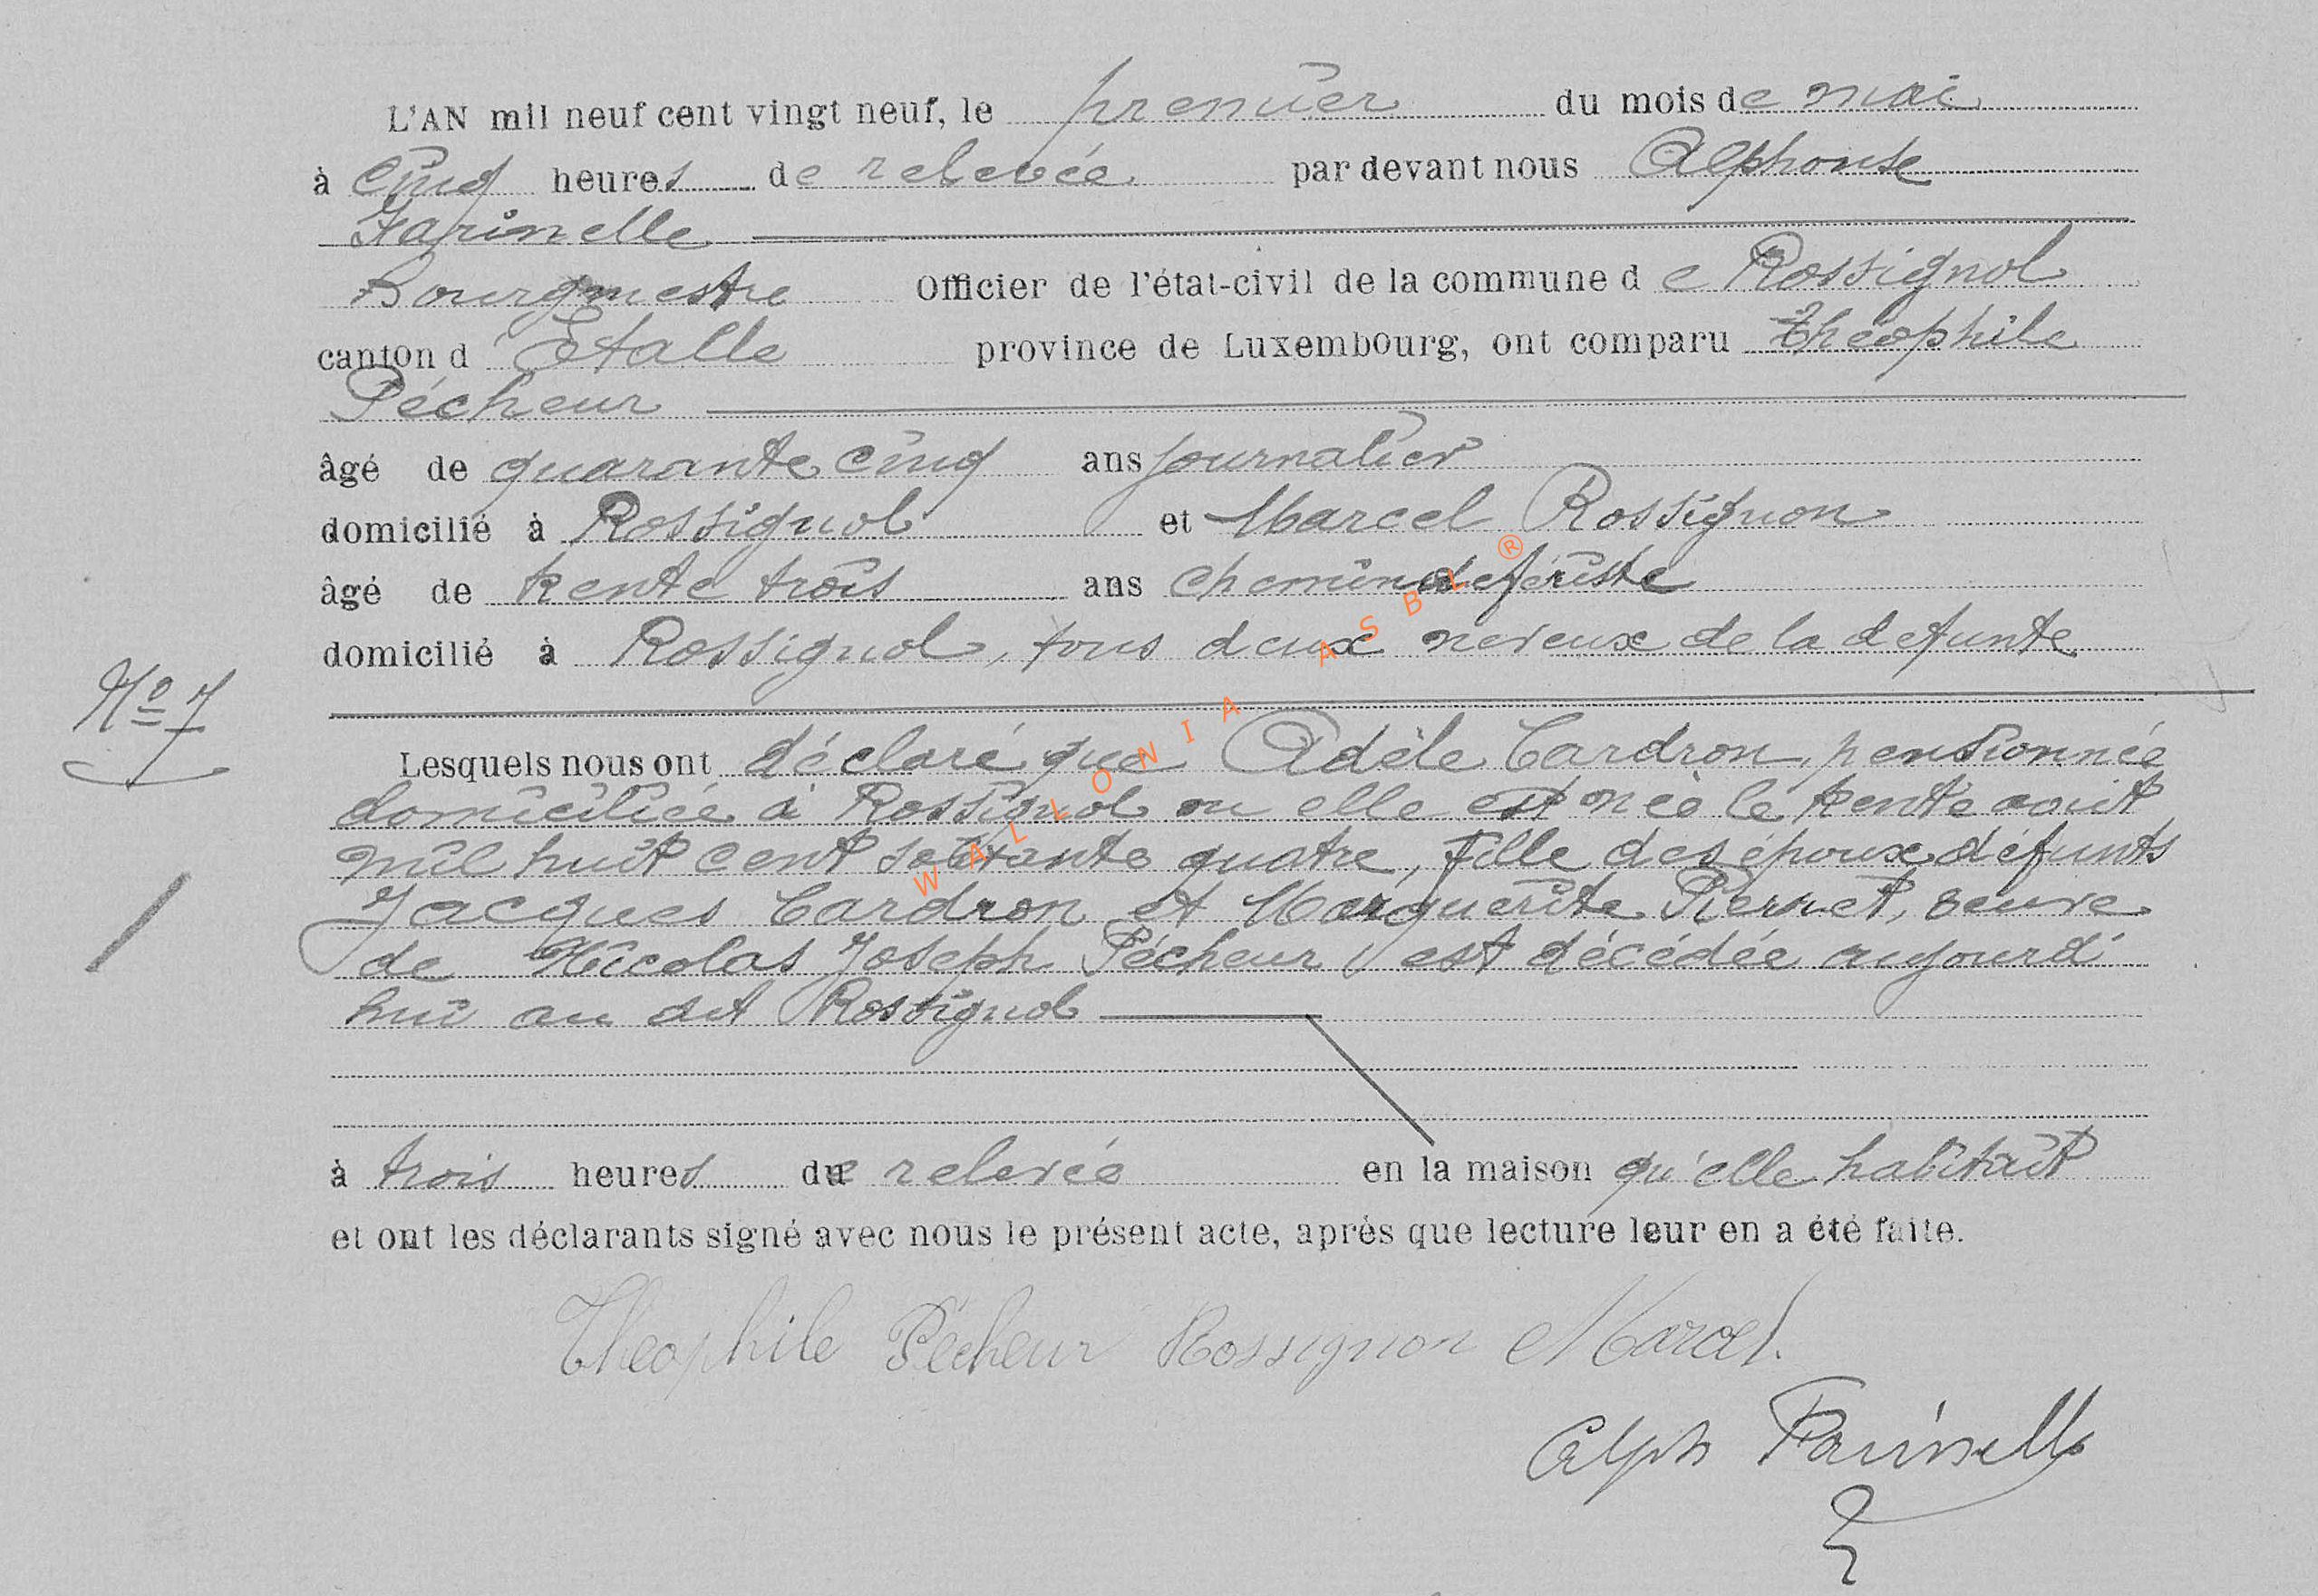 L'AN mil neuf cent vingt neuf, le premier du mois de mai
à cinq heures de relevée par devant nous Alphonse
Farinelle
Bourgmestre Officier de l'état-civil de la commune de Rossignol
canton d'Etalle province de Luxembourg, ont comparu Théophile
Pécheur
âgé de quarante cinq ans journalier
domicilié à Rossignol et Marcel Rossignon
âgé de trente trois ans chemindefériste
domicilié à Rossignol, tous deux neveux de la defunte
Nº 7
Lesquels nous ont déclaré que Adèle Cardron, pensionnée
domiciliée à Rossignol ou elle est née le trente aout
mil huit cent soixante quatre, fille des époux défunts
Jacques Cardron et Marguerite Pierret, veuve
de Nicolas Joseph Pécheur, est décédée aujourd'
hui au dit Rossignol
à trois heures de relevée en la maison qu'elle habitait
et ont les déclarants signé avec nous le présent acte, après que lecture leur en a été faite.
Théophile Pécheur Rossignon Marcel.
Alph Farinelle
WALLONIA ASBL ®